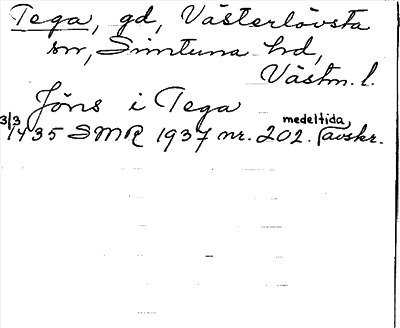 Tega, gd, Västerlövsta
sn, Simtuna hd,
Västm. l.
Jöns i Tega
3/3 1435 SMR 1937 nr. 202. medeltida avskr.